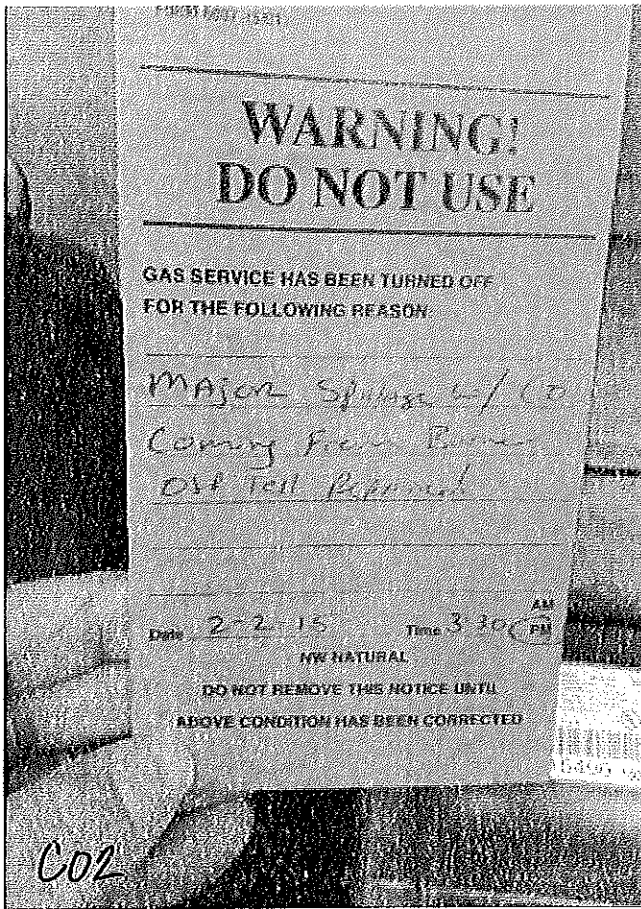 WARNING!
DO NOT USE
GAS SERVICE HAS BEEN TURNED OFF
FOR THE FOLLOWING REASON:
MAjor Spillage w/ CO
Coming From
Off Till
Date 2-2 15 Time 3 30 AM PM
NW NATURAL
DO NOT REMOVE THIS NOTICE UNTIL
ABOVE CONDITION HAS BEEN CORRECTED
CO2